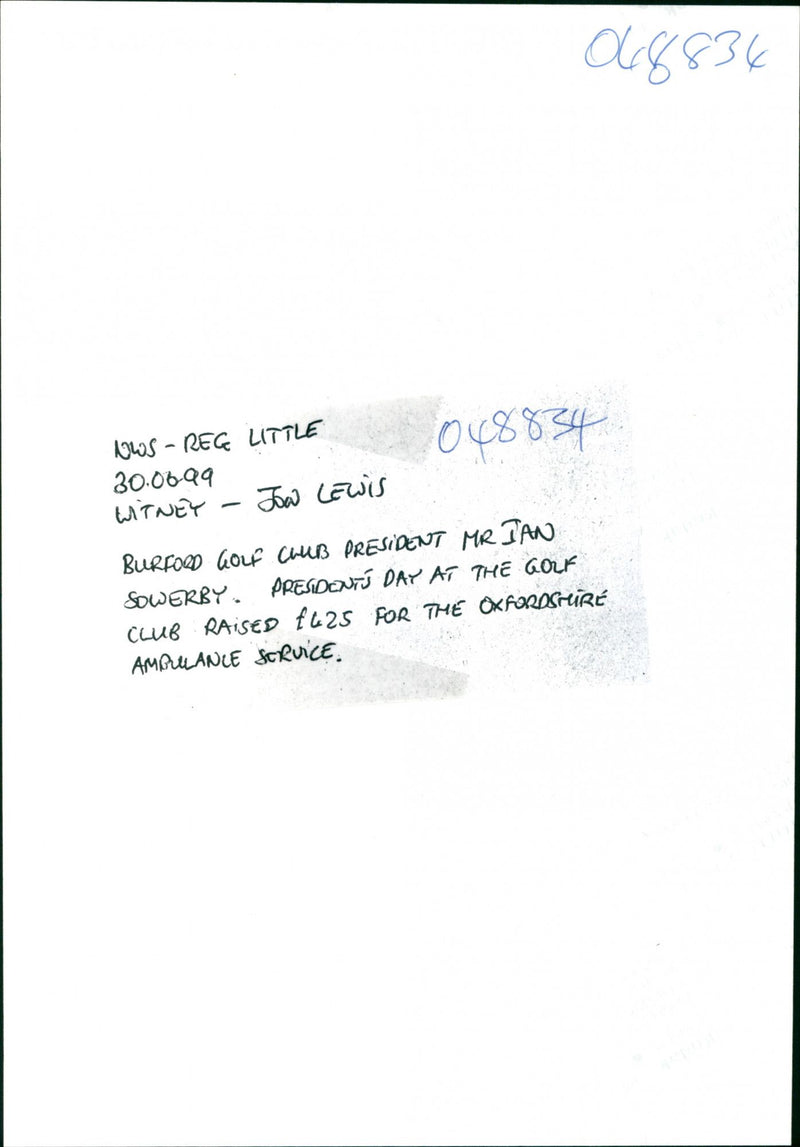 048834
NWS - REG LITTLE
048834
30.06.99
WITNEY - JON LEWIS
BURFORD GOLF CLUB PRESIDENT MR IAN
SOWERBY. PRESIDENT'S DAY AT THE GOLF
CLUB RAISED £425 FOR THE OXFORDSHIRE
AMBULANCE SERVICE.